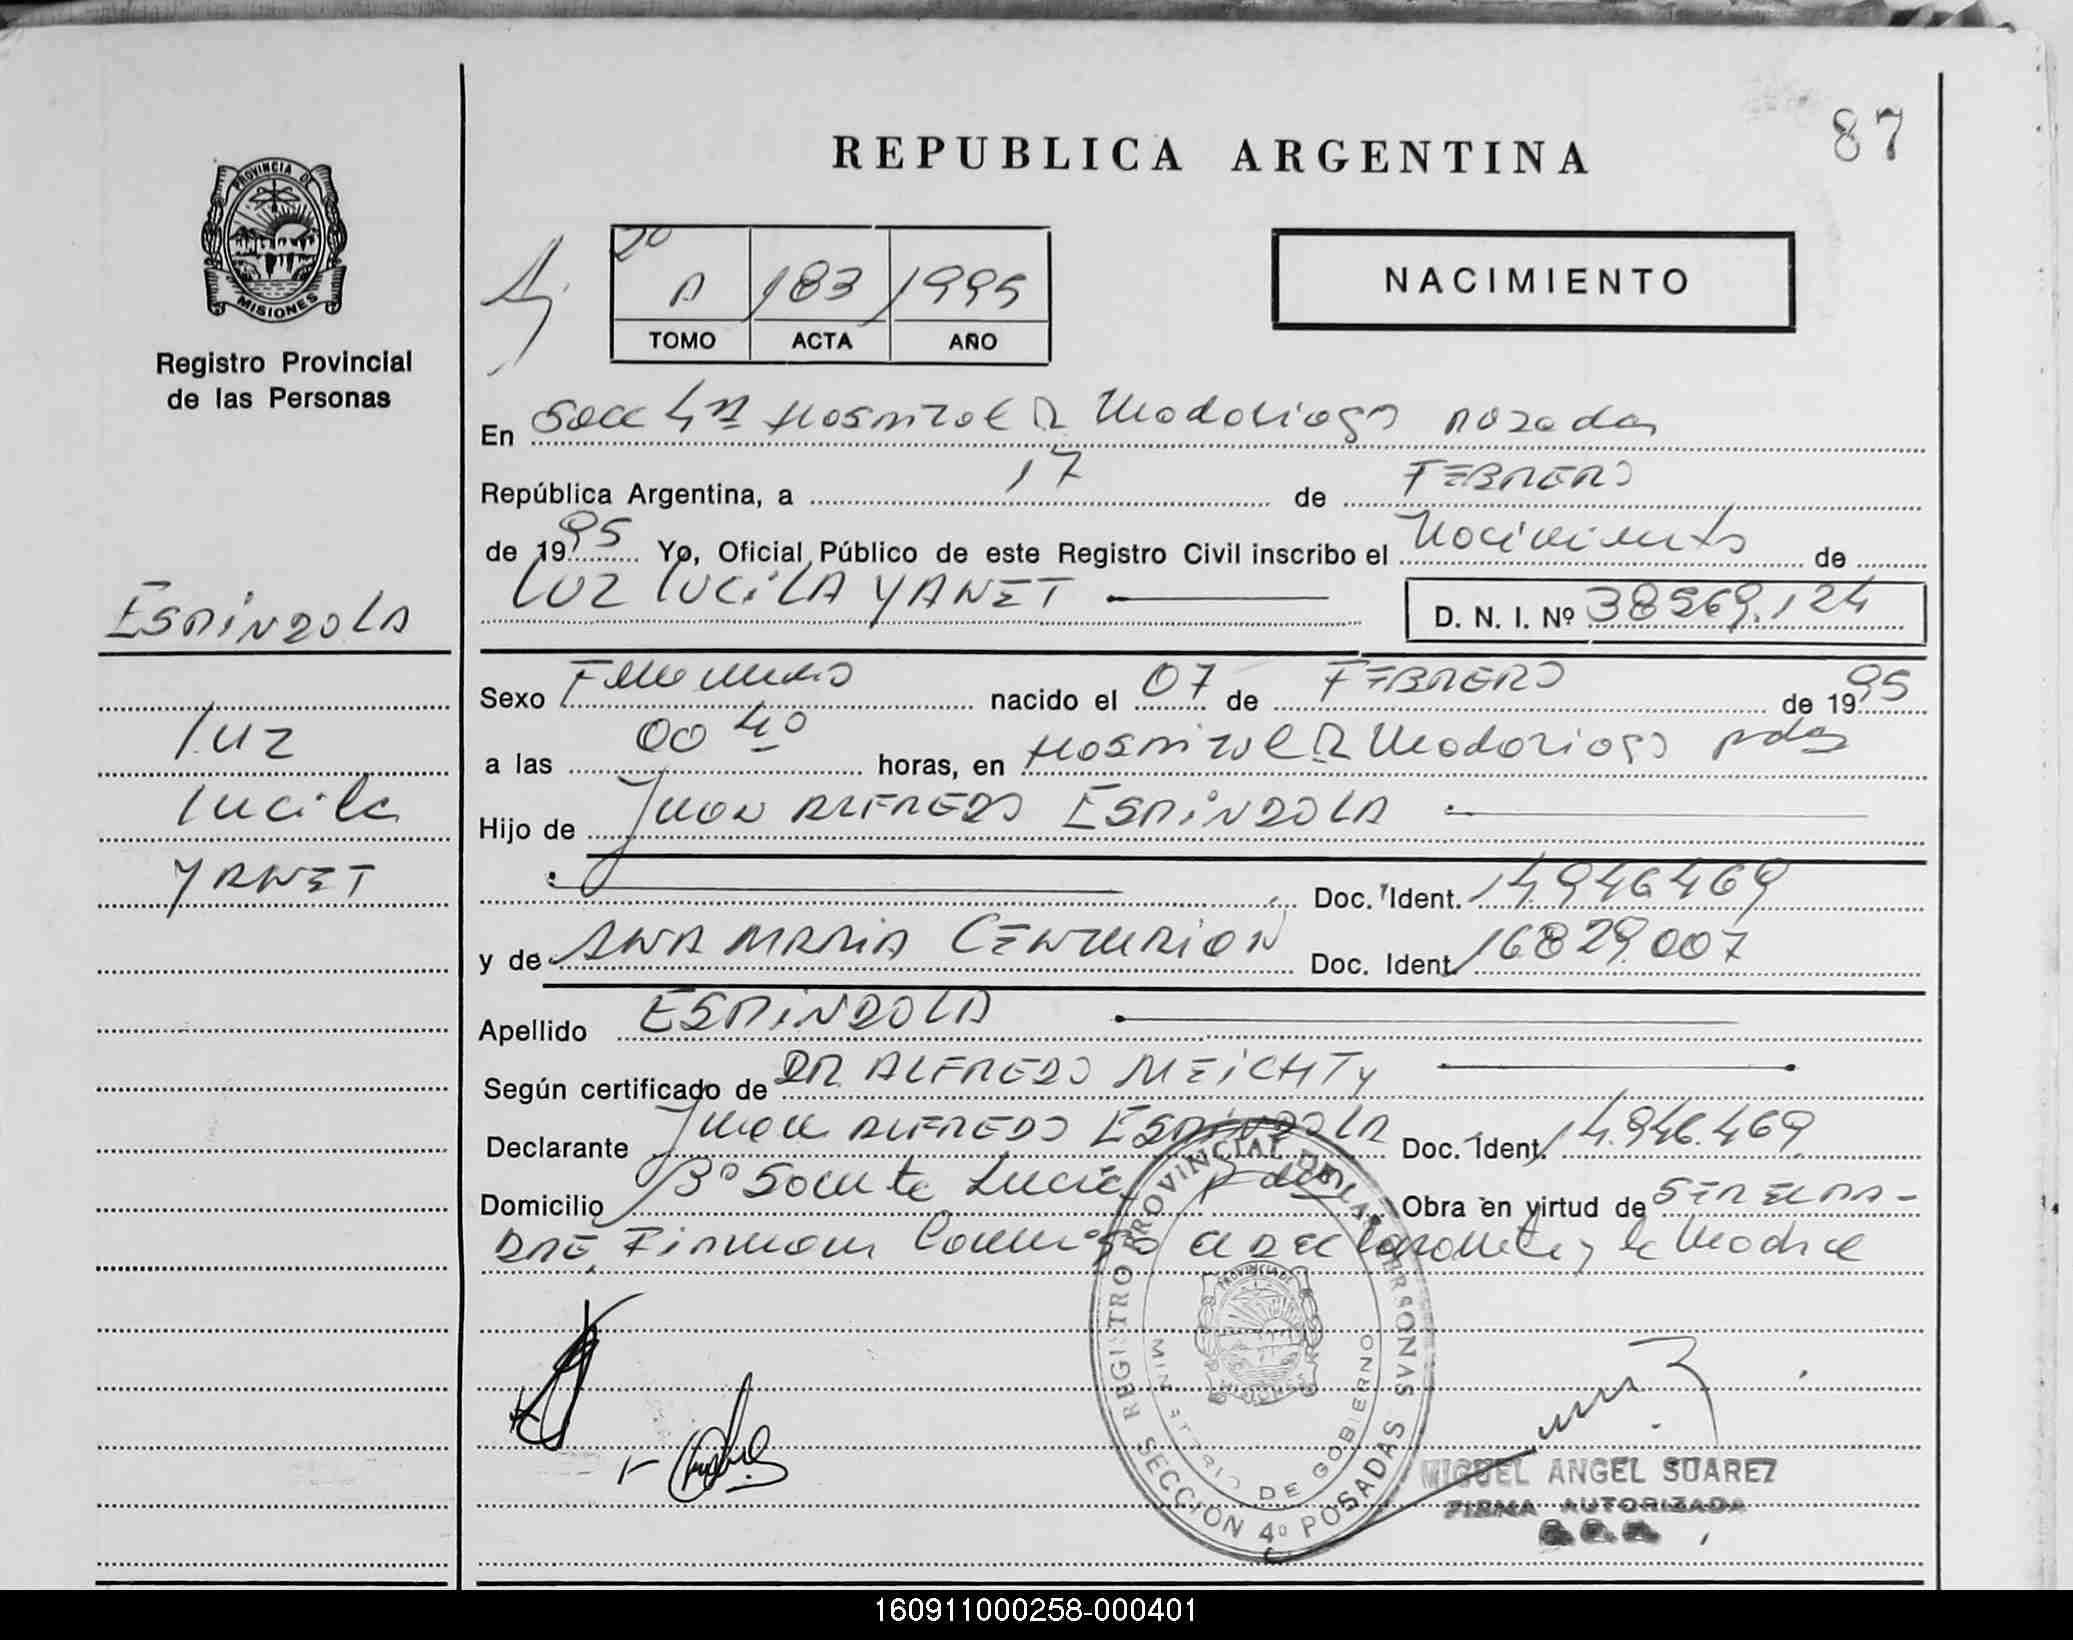 87
REPUBLICA ARGENTINA
PROVINCIA DE
MISIONES
Registro Provincial
de las Personas
2º
A 183 1995
TOMO ACTA AÑO
NACIMIENTO
En Secc 4ª Hospital R Madariaga Posadas
República Argentina, a 17 de FEBRERO
de 1995 Yo, Oficial Público de este Registro Civil inscribo el Nacimiento de
LUZ LUCILA YANET D. N. I. Nº 38569.124
ESPINDOLA
Luz
Lucila
YANET
Sexo Femenino nacido el 07 de FEBRERO de 1995
a las 00 40 horas, en Hospital R Madariaga pdas
Hijo de Juan ALFREDO ESPINDOLA
Doc. Ident. 14.946469
y de ANA MARIA CENTURION Doc. Ident. 16829.007
Apellido ESPINDOLA
Según certificado de DR ALFREDO MEICHTY
Declarante Juan ALFREDO ESPINDOLA Doc. Ident. 14.946.469
Domicilio Bº Santa Lucia pdas Obra en virtud de SER EL PA-
DRE, Firman Conmigo el declarante y la Madre
REGISTRO PROVINCIAL DE LAS PERSONAS
PROVINCIA DE
MISIONES
MINISTERIO DE GOBIERNO
SECCION 4º POSADAS
MIGUEL ANGEL SUAREZ
FIRMA AUTORIZADA
160911000258-000401